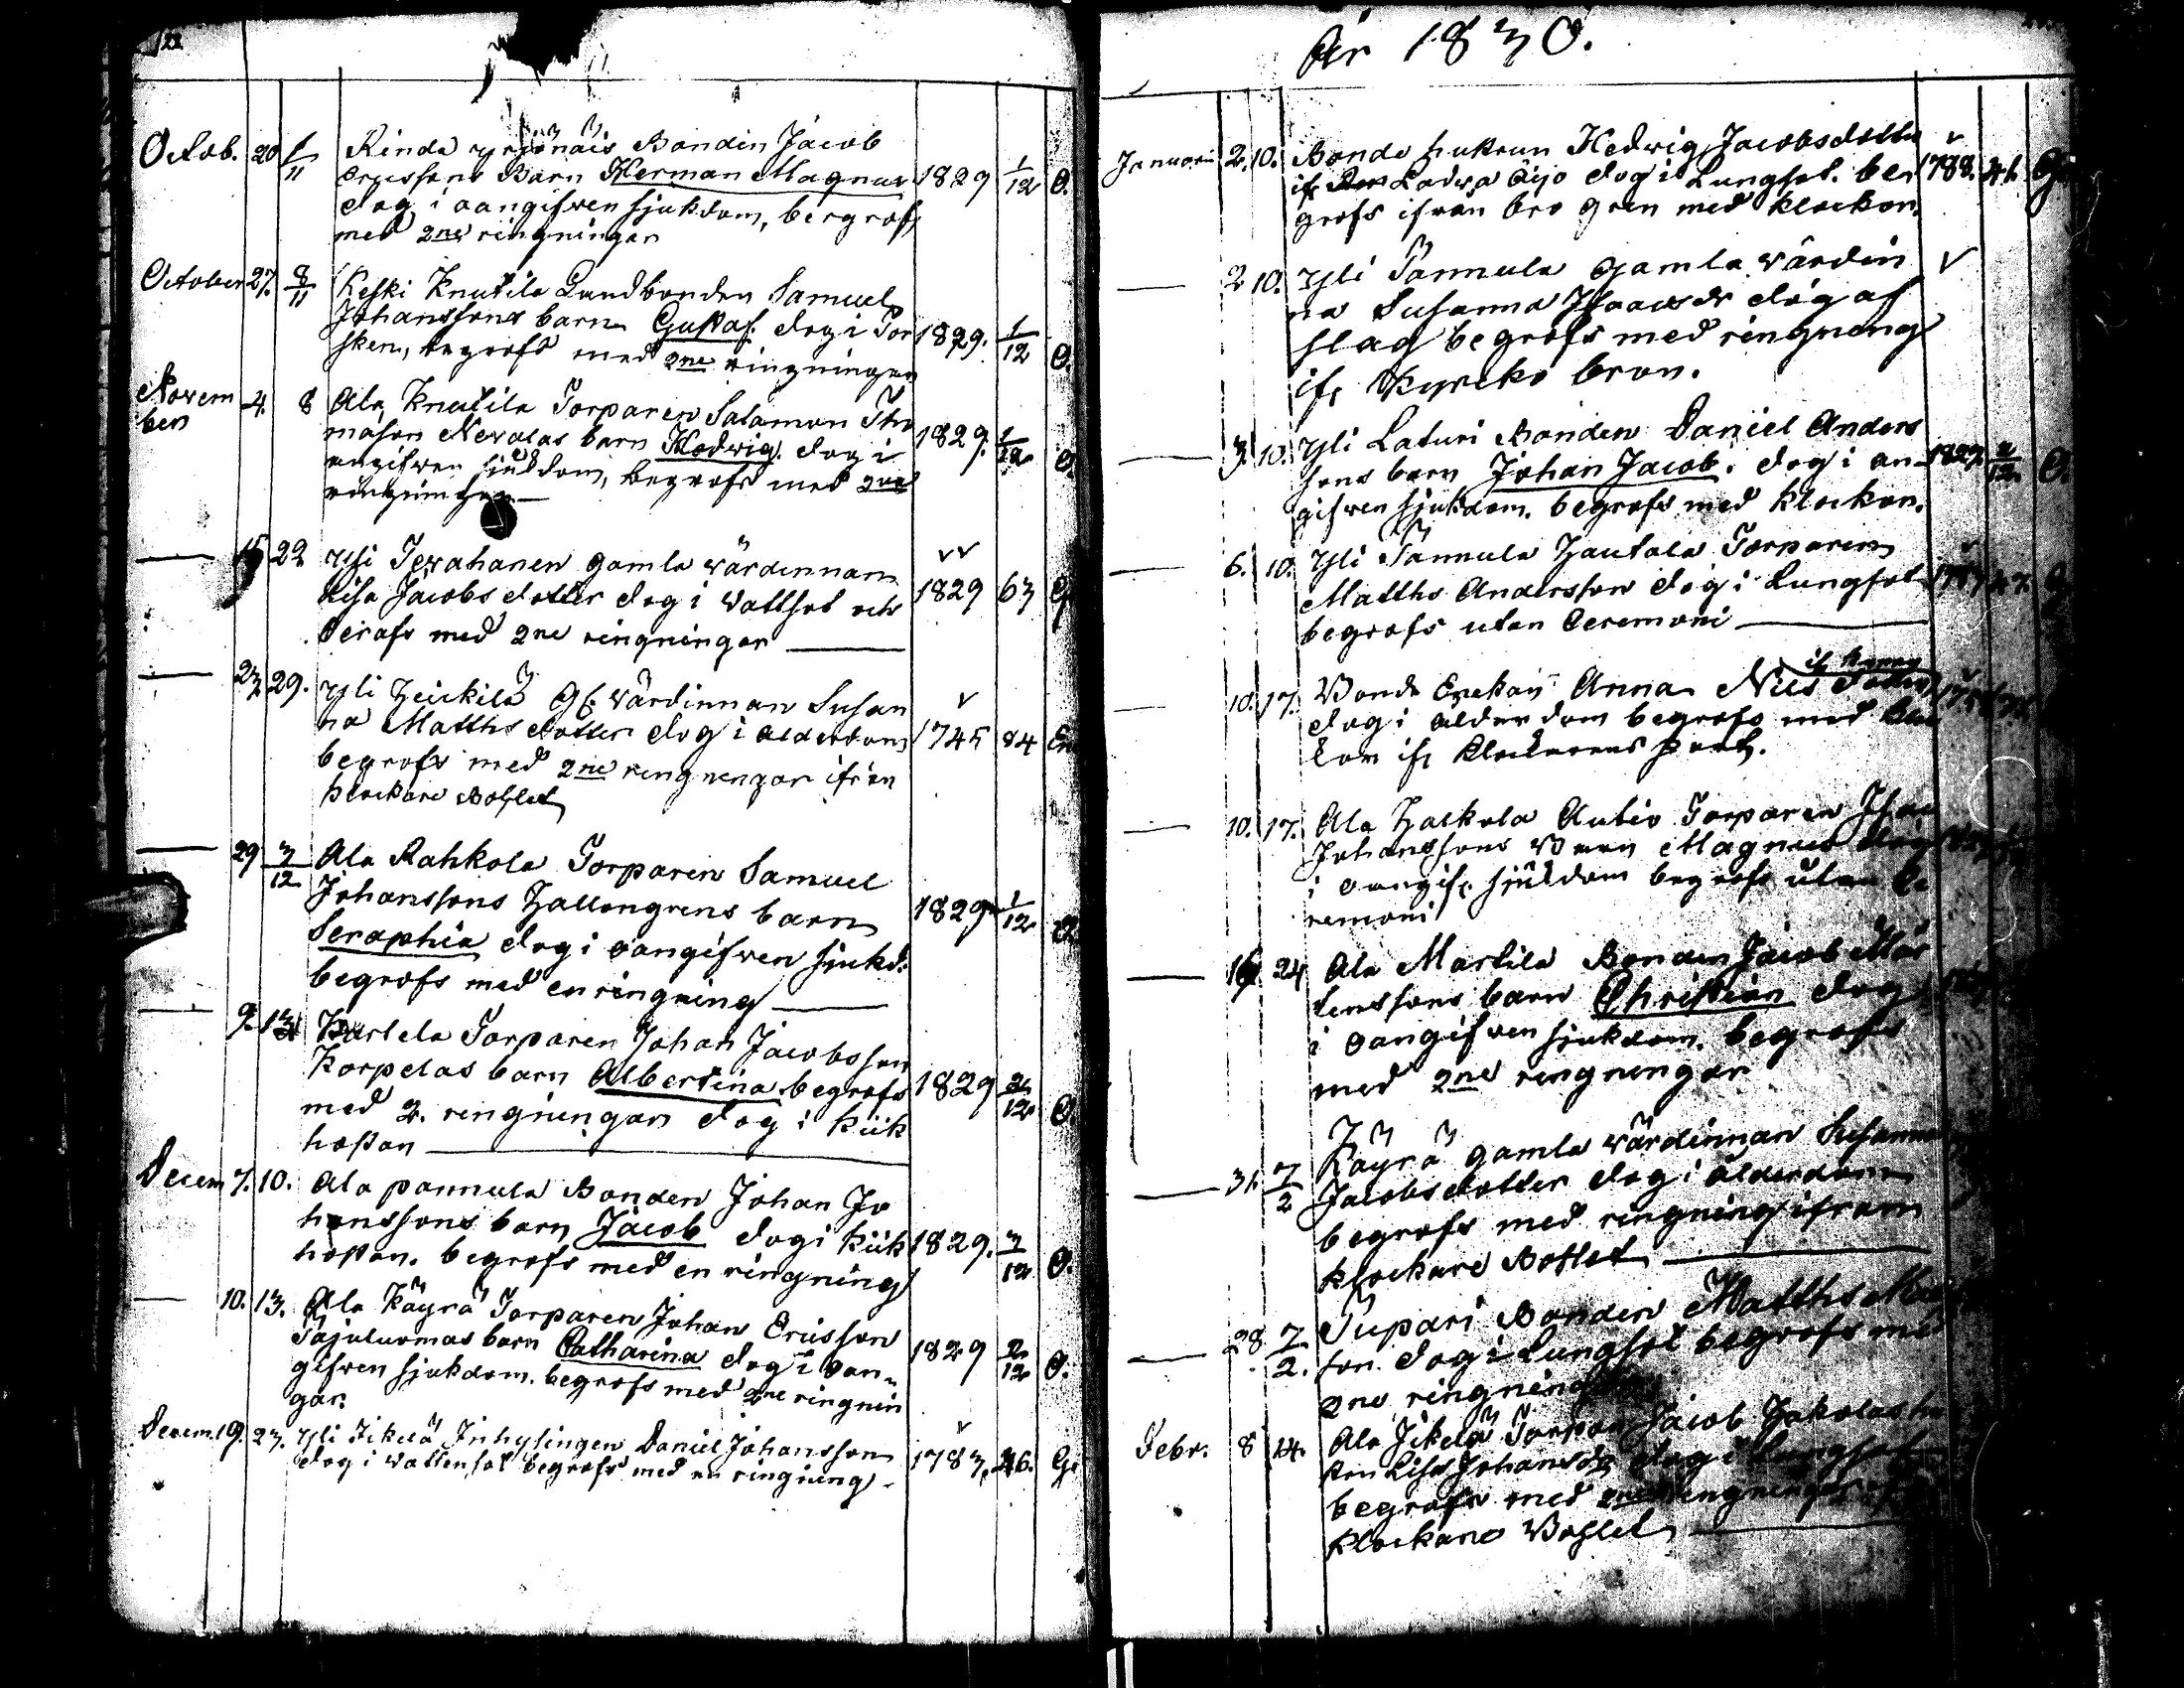 122
Octob. 20 1/11 Rinda yrjönäis Bonden Jacob
Ericssons Barn Herman Magnus 1829 1/12 O.
dog i oangifven sjukdom, begrafs
med 2ne ringningar
October 27. 8/11 Keski Knutila Landbonden Samuel
Johanssons barn Gustaf. dog i Tor
sken, begrofs med 2ne ringningar 1829. 1/12 O.
Novem
ber 4. 8 Ala Knutila Torparen Salamon Tho
mason Nevalas barn Hedwig. dog i 1829. 1/12 O.
angifven sjukdom, begrofs med 2ne
ringningar
15 22 Ysi Tervahanen gamla värdinnan
Lisa Jacobsdotter dog i Vattsot och 1829 63 G
begrafs med 2ne ringningar
23 29. Yli Heickilä Gl. värdinnan Susan
na Matthsdotter dog i ålderdom 1745 84 En
begrofs med 2ne ringningar ifrån
klockare Bohlet
29 3/12 Ala Rahkola Torparen Samuel
Johanssons Hallongrens barn 1829 1/12 O
Seraphia dog i oangifven sjukd:
begrofs med en ringning
9. 13 Kartela Torparen Johan Jacobsson
Korpelas barn Albertina. begrofs 1829 2/12 O.
med 2. ringningar dog i kik
hostan
Decem 7. 10. Ala pannula Bonden Johan Jo
hanssons barn Jacob dog i kik 1829. 3/12 O.
hostan. begrofs med en ringning
10. 13. Ala Käyrä Torparen Johan Ericsson
Täjuluomas barn Catharina dog i oan- 1829 2/12 O.
gifven sjukdom. begrofs med 2ne ringnin
gar.
Decem. 19. 27. Yli Jikelä Inhysingen Daniel Johansson
dog i vattensot begrofs med en ringning 1783. 46. G.
År 1830.
Januari 2. 10. Bonde hustrun Hedwig Jacobsdotter
ifr Ladva Äijo dog i Lungsot. be 1788. 41. G
grofs ifrån bro gren med klockon.
2 10. Yli Pannula gamla värdin
na Susanna Isaacsdr dog af
slag begrofs med ringning
ifr Kyrcko bron.
3. 10. Yli Laturi Bonden Daniel Anders
sons barn Johan Jacob. dog i oan- 1827. 2/12 O.
gifven sjukdom. begrofs med klockon.
6. 10. Yli Pannula Hautala Torparen
Matths Andersson dog i Lungsot 47.
begrofs utan Ceremoni
10. 17. Bonde Enckan Anna Nils dotter
dog i ålderdom begrofs med kloc
kon ifr Klockarens
10. 17. Ala Hackola Autio Torparen Isac
Johanssons Barn Magnus dog
i oangifr. sjukdom begrofs utan Ce
remoni
16 24 Ala Martila Bonden Jacob Mår
tenssons barn Christian dog
i oangifven sjukdom. begrofs
med 2ne ringningar
31. 7/2 Käyrä gamla värdinnan Susanna
Jacobsdotter dog i ålderdom
begrofs med ringning ifrån
klockare Bohlet
28 7/2. Tupari Bonden Matths
son. dog i Lungsot begrofs med
2ne ringningar
Febr. 8 14. Ala Jikelä Torpar Jacob Jakolas hu
stru Lisa Johansdr dog i Lungsot
begrofs med 2ne ringningar
klockare Bohlet